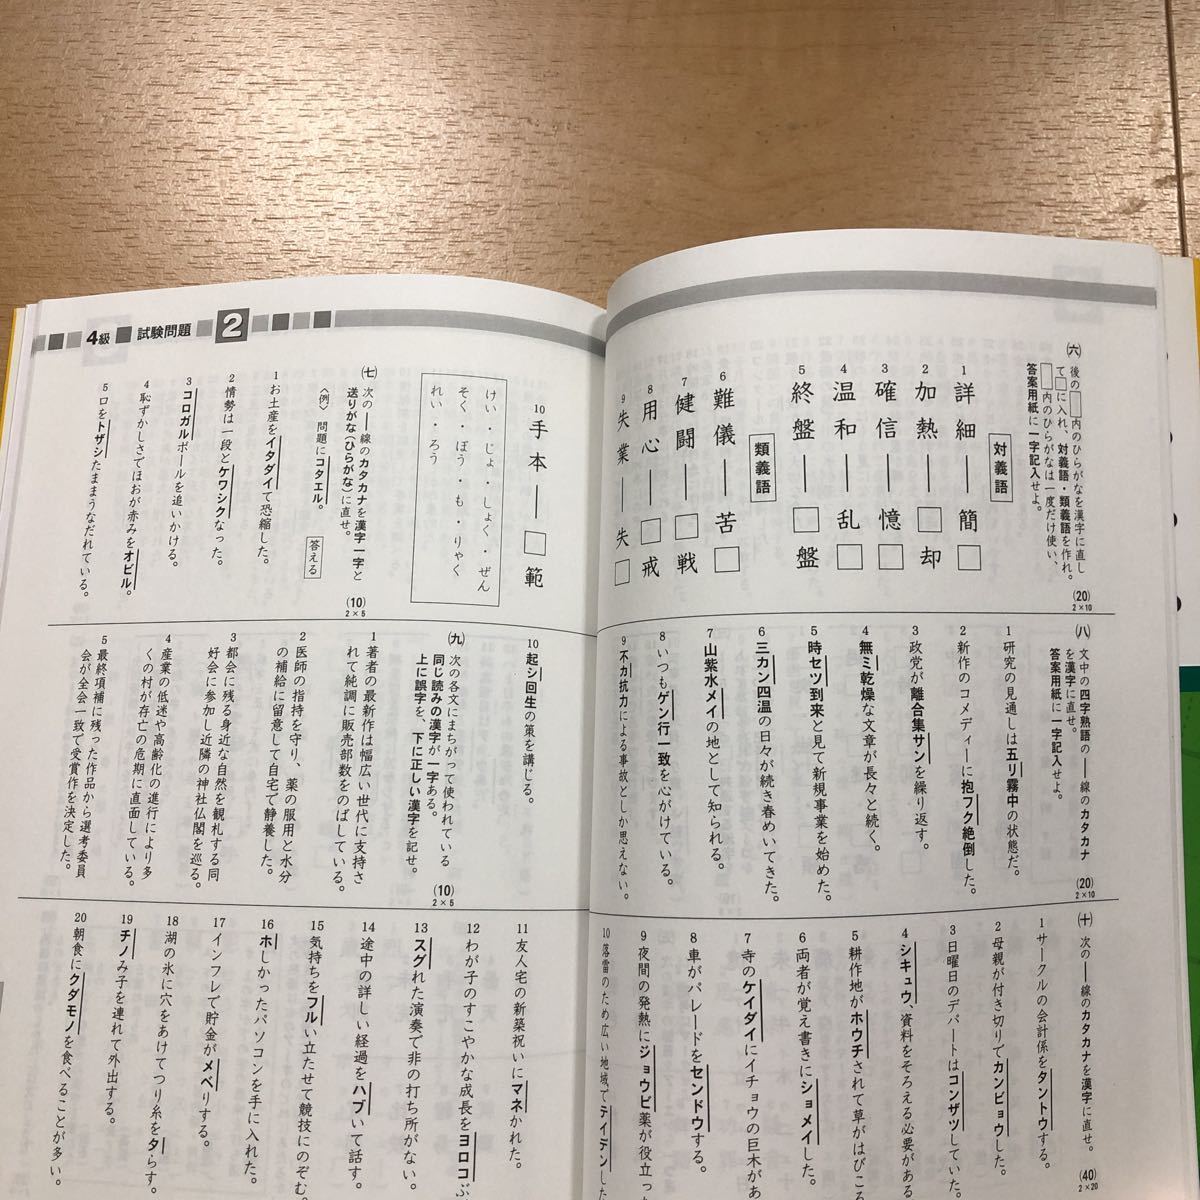 4級 試験問題 2
㈥ 後の□内のひらがなを漢字に直し
て□に入れ、対義語・類義語を作れ。
□内のひらがなは一度だけ使い、
答案用紙に一字記入せよ。
(20)
2×10
対義語
1 詳細―簡□
2 加熱―□却
3 確信―□憶
4 温和―乱□
5 終盤―□盤
類義語
6 難儀―苦□
7 健闘―□戦
8 用心―□戒
9 失業―失□
10 手本―□範
けい・じょ・しょく・ぜん
そく・ぼう・も・りゃく
れい・ろう
㈦ 次の――線のカタカナを漢字一字と
送りがな(ひらがな)に直せ。
〈例〉 問題にコタエル。 答える
(10)
2×5
1 お土産をイタダイて恐縮した。
2 情勢は一段とケワシクなった。
3 コロガルボールを追いかける。
4 恥ずかしさでほおが赤みをオビル。
5 口をトザシたままうなだれている。
㈧ 文中の四字熟語の――線のカタカナ
を漢字に直せ。
答案用紙に一字記入せよ。
(20)
2×10
1 研究の見通しは五リ霧中の状態だ。
2 新作のコメディーに抱フク絶倒した。
3 政党が離合集サンを繰り返す。
4 無ミ乾燥な文章が長々と続く。
5 時セツ到来と見て新規事業を始めた。
6 三カン四温の日々が続き春めいてきた。
7 山紫水メイの地として知られる。
8 いつもゲン行一致を心がけている。
9 不カ抗力による事故としか思えない。
10 起シ回生の策を講じる。
㈨ 次の各文にまちがって使われている
同じ読みの漢字が一字ある。
上に誤字を、下に正しい漢字を記せ。
(10)
2×5
1 著者の最新作は幅広い世代に支持さ
れて純調に販売部数をのばしている。
2 医師の指持を守り、薬の服用と水分
の補給に留意して自宅で静養した。
3 都会に残る身近な自然を観札する同
好会に参加し近隣の神社仏閣を巡る。
4 産業の低迷や高齢化の進行により多
くの村が存亡の危期に直面している。
5 最終項補に残った作品から選考委員
会が全会一致で受賞作を決定した。
㈩ 次の――線のカタカナを漢字に直せ。
(40)
2×20
1 サークルの会計係をタントウする。
2 母親が付き切りでカンビョウした。
3 日曜日のデパートはコンザツしていた。
4 シキュウ、資料をそろえる必要がある
5 耕作地がホウチされて草がはびこる
6 両者が覚え書きにショメイした。
7 寺のケイダイにイチョウの巨木があ
8 車がパレードをセンドウする。
9 夜間の発熱にジョウビ薬が役立った
10 落雷のため広い地域でテイデンした
11 友人宅の新築祝いにマネかれた。
12 わが子のすこやかな成長をヨロコぶ
13 スグれた演奏で非の打ち所がない。
14 途中の詳しい経過をハブいて話す。
15 気持ちをフルい立たせて競技にのぞむ。
16 ホしかったパソコンを手に入れた。
17 インフレで貯金がメベりする。
18 湖の氷に穴をあけてつり糸をタらす。
19 チノみ子を連れて外出する。
20 朝食にクダモノを食べることが多い。